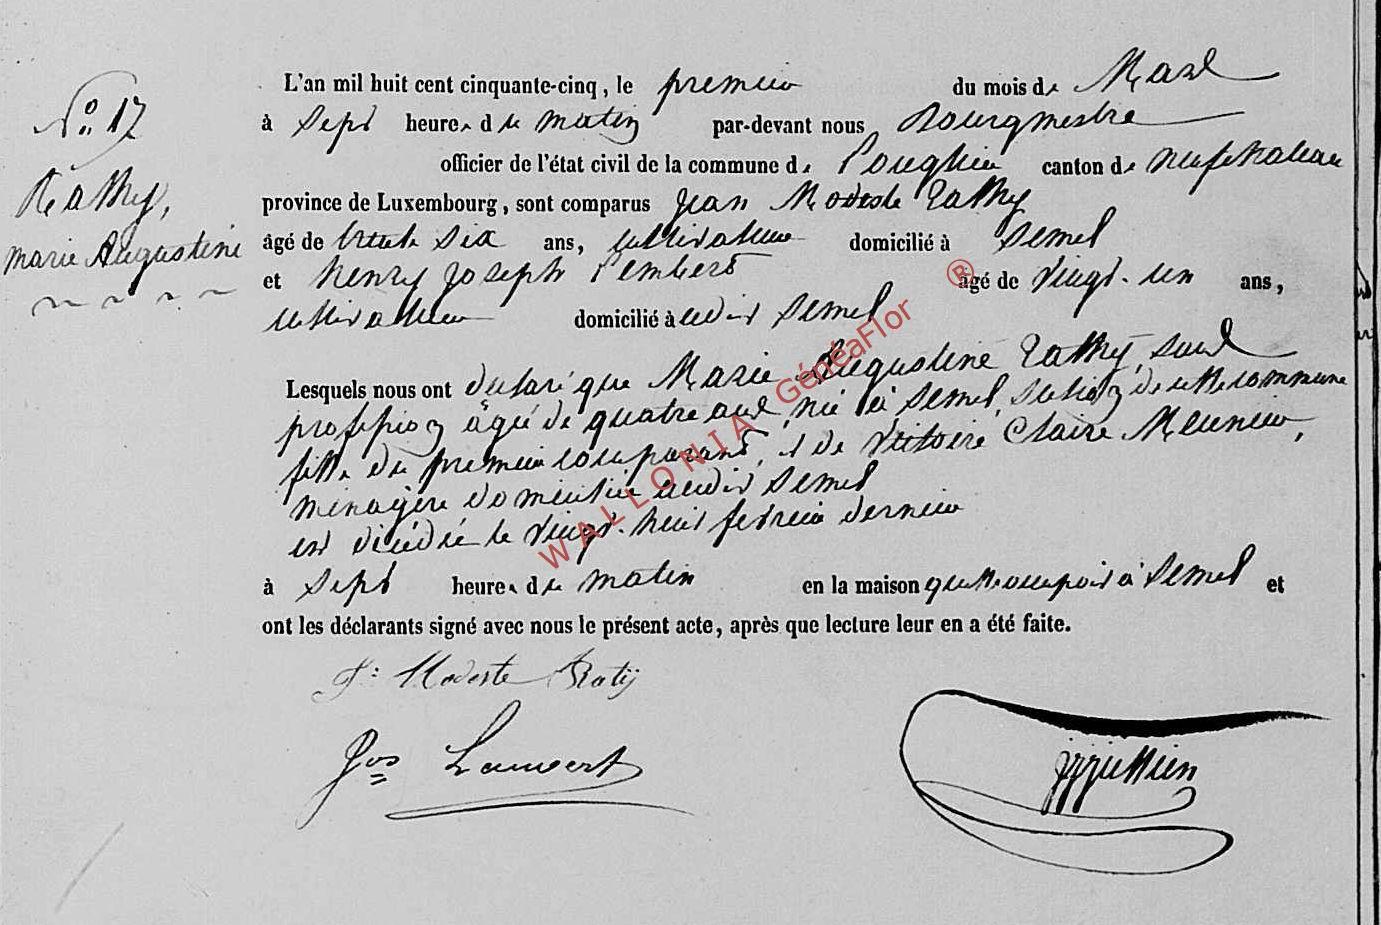 N° 17
Rathy,
marie Augustine
L'an mil huit cent cinquante-cinq, le premier du mois de Mars
à sept heures du matin par-devant nous Bourgmestre
officier de l'état civil de la commune de Longlier canton de neufchateau
province de Luxembourg, sont comparus Jean Modeste Rathy
âgé de trente six ans, cultivateur domicilié à Semel
et henry joseph Lembert âgé de vingt-un ans,
cultivateur domicilié à udit Semel
Lesquels nous ont declaré que Marie Augustine Rathy, sans
profession agée de quatre ans, née à Semel, section de cette commune
fille du premier comparant, et de Victoire Claire Meunier,
menagère domiciliée audit Semel
est décédée le vingt-huit fevrier dernier
à sept heures du matin en la maison quelle occupoit à Semel et
ont les déclarants signé avec nous le présent acte, après que lecture leur en a été faite.
J: Modeste Ratij
Jos Lambert
WALLONIA GénéaFlor ®